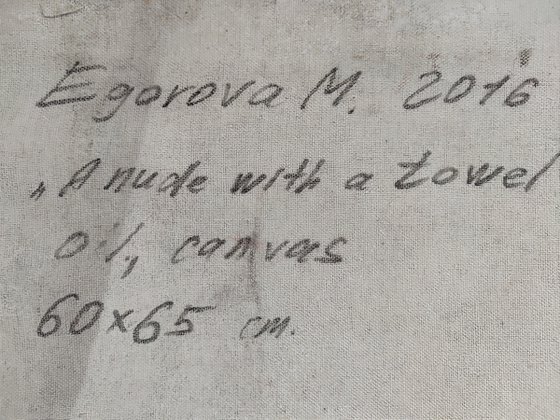 Egorova M. 2016
„A nude with a towel
oil, canvas
60x65 cm.